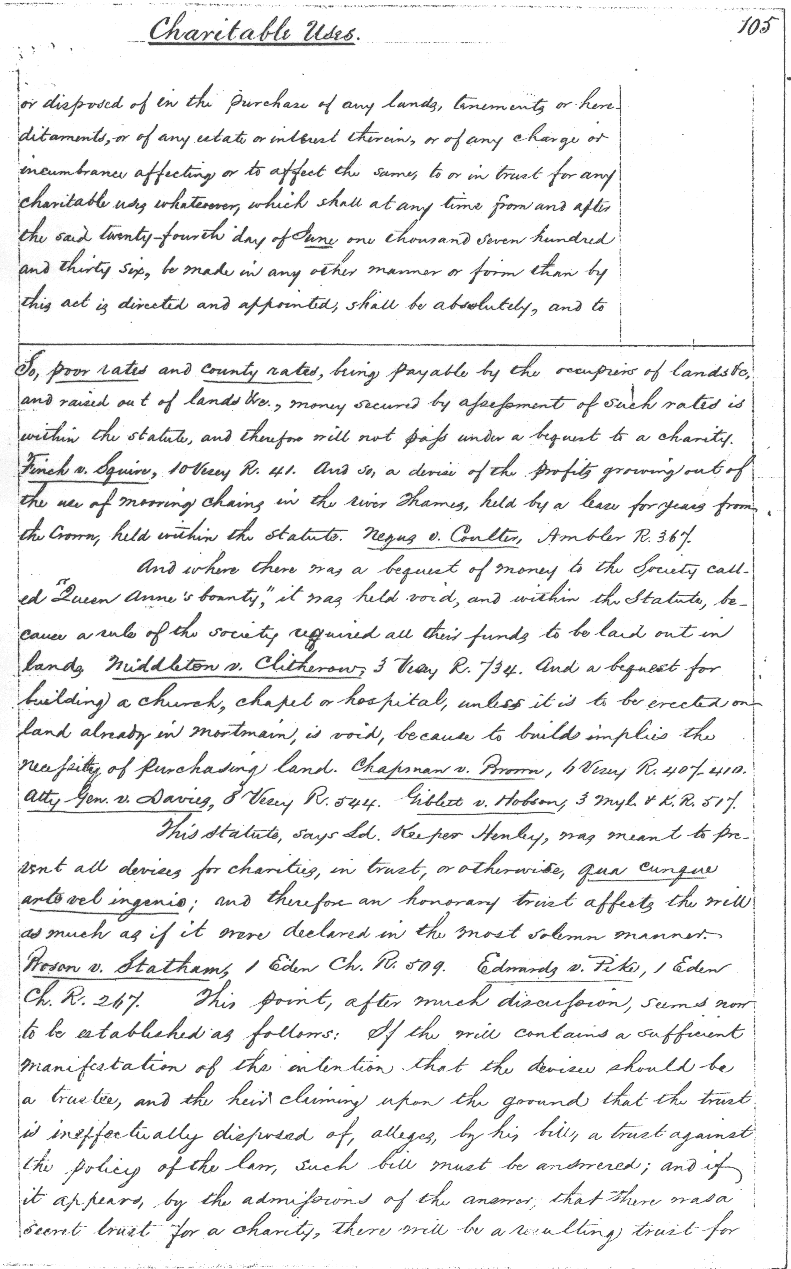 Charitable Uses.
105
or disposed of in the purchase of any lands, tenements, or here-
ditaments, or of any estate or interest therein, or of any charge or
incumbrance affecting or to affect the same, to or in trust for any
charitable uses whatsoever, which shall at any time from and after
the said twenty-fourth day of June one thousand seven hundred
and thirty six, be made in any other manner or form than by
this act is directed and appointed, shall be absolutely, and to
So, poor rates and county rates, being payable by the occupiers of lands &c,
and raised out of lands &c., money secured by assessment of such rates is
within the statute, and therefore will not pass under a bequest to a charity.
Finch v. Squire, 10 Vesey R. 41. And so, a devise of the profits growing out of
the use of mooring chains in the river Thames, held by a lease for years from
the Crown, held within the statute. Negus v. Coulter, Ambler R. 367.
And where there was a bequest of money to the Society call-
ed "Queen Anne's bounty," it was held void, and within the Statute, be-
cause a rule of the society required all their funds to be laid out in
lands, Middleton v. Clitherow, 3 Vesey R. 734. And a bequest for
building a church, chapel or hospital, unless it is to be erected on
land already in mortmain, is void, because to builds implies the
necessity of purchasing land. Chapman v. Brown, 6 Vesey R. 407. 410.
Atty Gen. v. Davies, 8 Vesey R. 544. Giblett v. Hobson, 3 Myl. & K. R. 517.
This Statute, says Ld. Keeper Henley, was meant to pre-
vent all devises for charities, in trust, or otherwise, qua cunque
arte vel ingenio; and therefore an honorary trust affects the will
as much as if it were declared in the most solemn manner.
Boson v. Statham, 1 Eden Ch. R. 509. Edwards v. Pike, 1 Eden
Ch. R. 267. This point, after much discussion, seems now
to be established as follows: If the will contains a sufficient
manifestation of the intention that the devisee should be
a trustee, and the heir claiming upon the ground that the trust
is ineffectually disposed of, alleges, by his bill, a trust against
the policy of the law, such bill must be answered; and if
it appears, by the admissions of the answer, that there was a
secret trust for a charity, there will be a resulting trust for